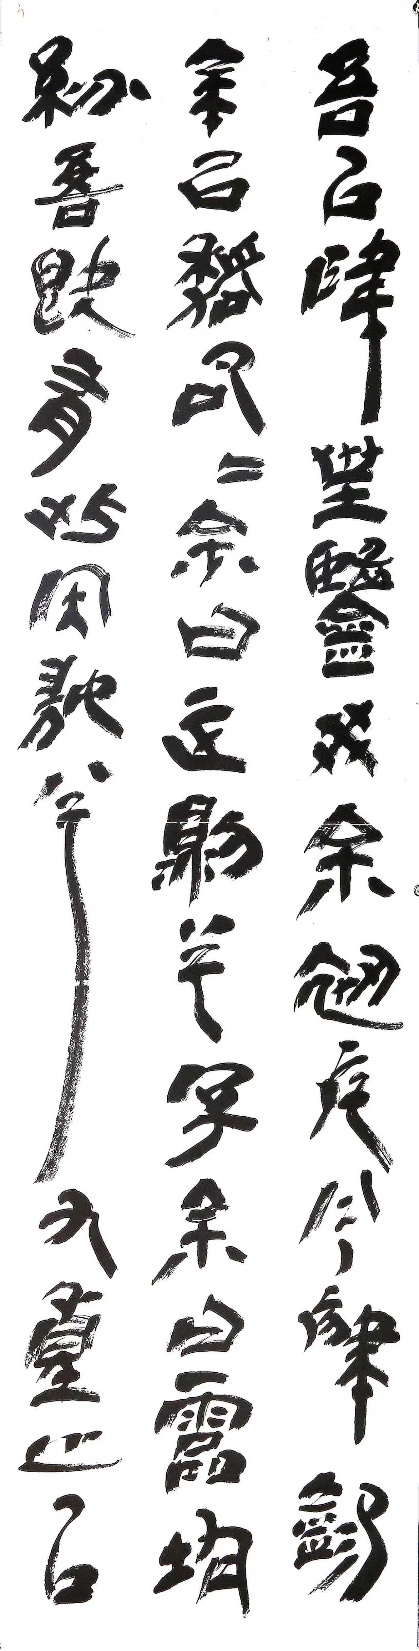 吾以降皇覽揆余初度兮肇錫
余以嘉名=余曰正則兮字余曰靈均
紛吾既有此內美兮又重之以